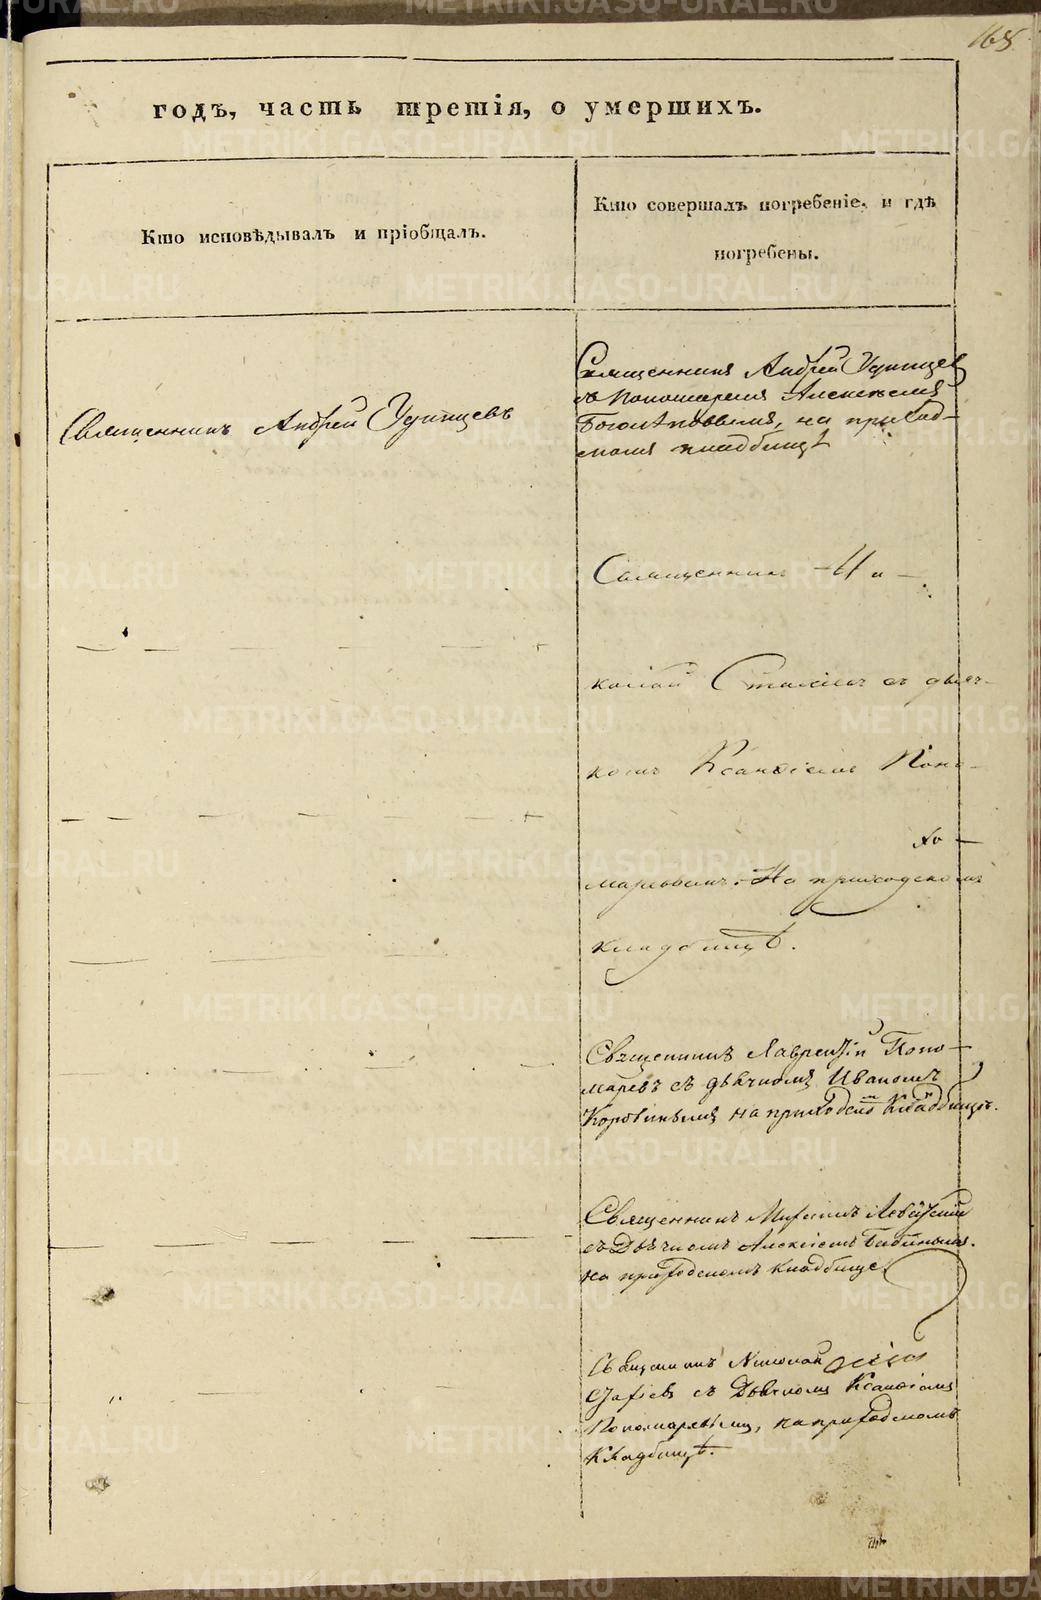 168
годъ, часть третія, о умершихъ.
Кто исповѣдывалъ и пріобщалъ.
Кто совершалъ погребеніе, и гдѣ
погребены.
Священникъ Андрей Удинцевъ
Священникъ Андрей Удинцевъ
съ Пономаремъ Алексѣемъ
Боголѣповымъ, на приход-
момъ кладбищѣ
Священникъ Ни-
колай съ дьяч-
комъ Ксанѳіемъ Поно-
маревымъ. На приходскомъ
кладбищѣ.
Священникъ Лаврентій Поно-
маревъ съ дьячкомъ Иваномъ
Коровинымъ на приходскомъ кладбищѣ.
Священникъ
съ Дьячкомъ Алексіемъ Бабинымъ.
на приходскомъ кладбище
Священникъ Николай
съ Дьячкомъ Ксанѳіемъ
Пономаревымъ, на приходскомъ
Кладбищѣ.
METRIKI.GASO-URAL.RU